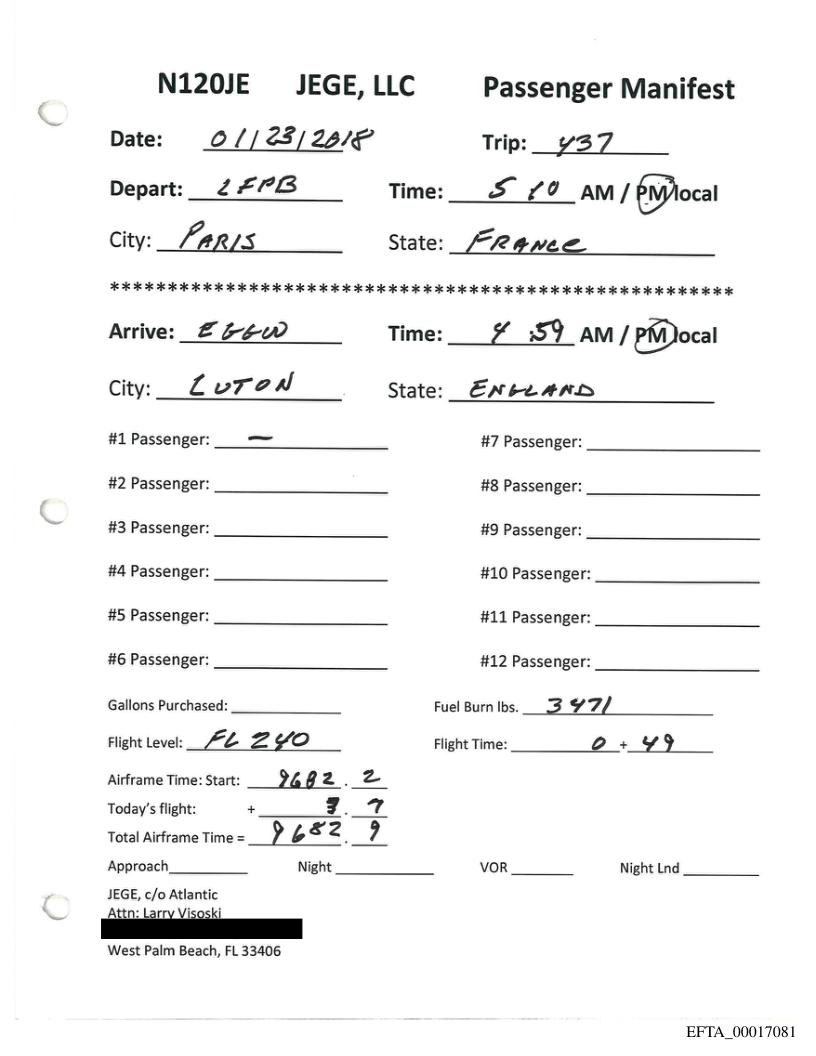 N120JE JEGE, LLC Passenger Manifest
Date: 01/23/2018 Trip: 437
Depart: LFPB Time: 5 10 AM / PM local
City: PARIS State: FRANCE
******************************************************
Arrive: EGGW Time: 4:59 AM / PM local
City: LUTON State: ENGLAND
#1 Passenger: — #7 Passenger:
#2 Passenger: #8 Passenger:
#3 Passenger: #9 Passenger:
#4 Passenger: #10 Passenger:
#5 Passenger: #11 Passenger:
#6 Passenger: #12 Passenger:
Gallons Purchased: Fuel Burn lbs. 3471
Flight Level: FL 240 Flight Time: 0 + 49
Airframe Time: Start: 9682.2
Today's flight: + .7
Total Airframe Time = 9682.9
Approach Night VOR Night Lnd
JEGE, c/o Atlantic
Attn: Larry Visoski
West Palm Beach, FL 33406
EFTA_00017081